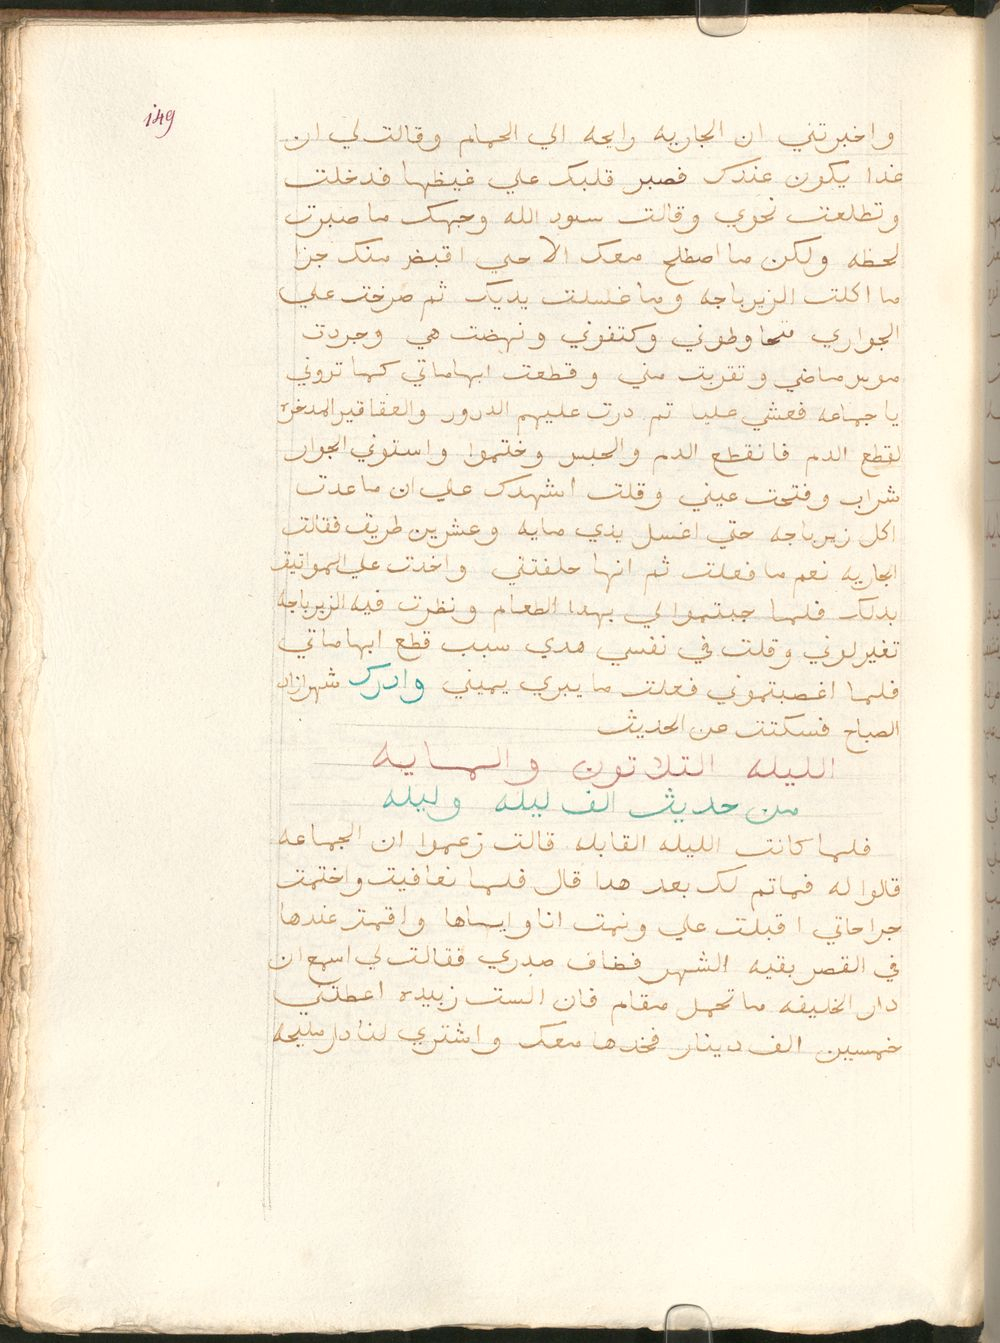 149
واخبرتني ان الجاريه رايحه الي الحمام وقالت لي ان
غدا يكون عندك فصبر قلبك علي غيظها فدخلت
وتطلعت نحوي وقالت سود الله وجهك ما صبرت
لحظه ولكن ما اصطلح معك الا حتي اقبض منك جزا
ما اكلت الزيرباجه وما غسلت يديك ثم صرخت علي
الجواري فتحاوطوني وكتفوني ونهضت هي وجردت
موس ماضي وتقربت مني وقطعت ابهاماتي كما تروني
يا جماعه فغشي عليا تم درت عليهم الدرور والعقاقير المدخره
لقطع الدم فانقطع الدم والحبس وختموا واسقوني الجوار
شراب وفتحت عيني وقلت اشهدك علي ان ما عدت
اكل زيرباجه حتي اغسل يدي مايه وعشرين طريق فقالت
الجاريه نعم ما فعلت ثم انها حلفتني واخدت علي المواتيق
بدلك فلما جبتموا لي بهدا الطعام ونظرت فيه الزيرباجه
تغير لوني وقلت في نفسي هدي سبب قطع ابهاماتي
فلما اغصبتموني فعلت ما يبري يميني وادرك شهرازاد
الصباح فسكتت عن الحديث
الليله التلاتون والمايه
من حديث الف ليله وليله
فلما كانت الليله القابله قالت زعموا ان الجماعه
قالوا له فماتم لك بعد هدا قال فلما تعافيت واختمت
جراحاتي اقبلت علي ونمت انا واياها واقمت عندها
في القصر بقيه الشهر فضاف صدري فقالت لي اسمع ان
دار الخليفه ما تحمل مقام فان الست زبيده اعطتني
خمسين الف دينار فخدها معك واشتري لنا دار مليحه